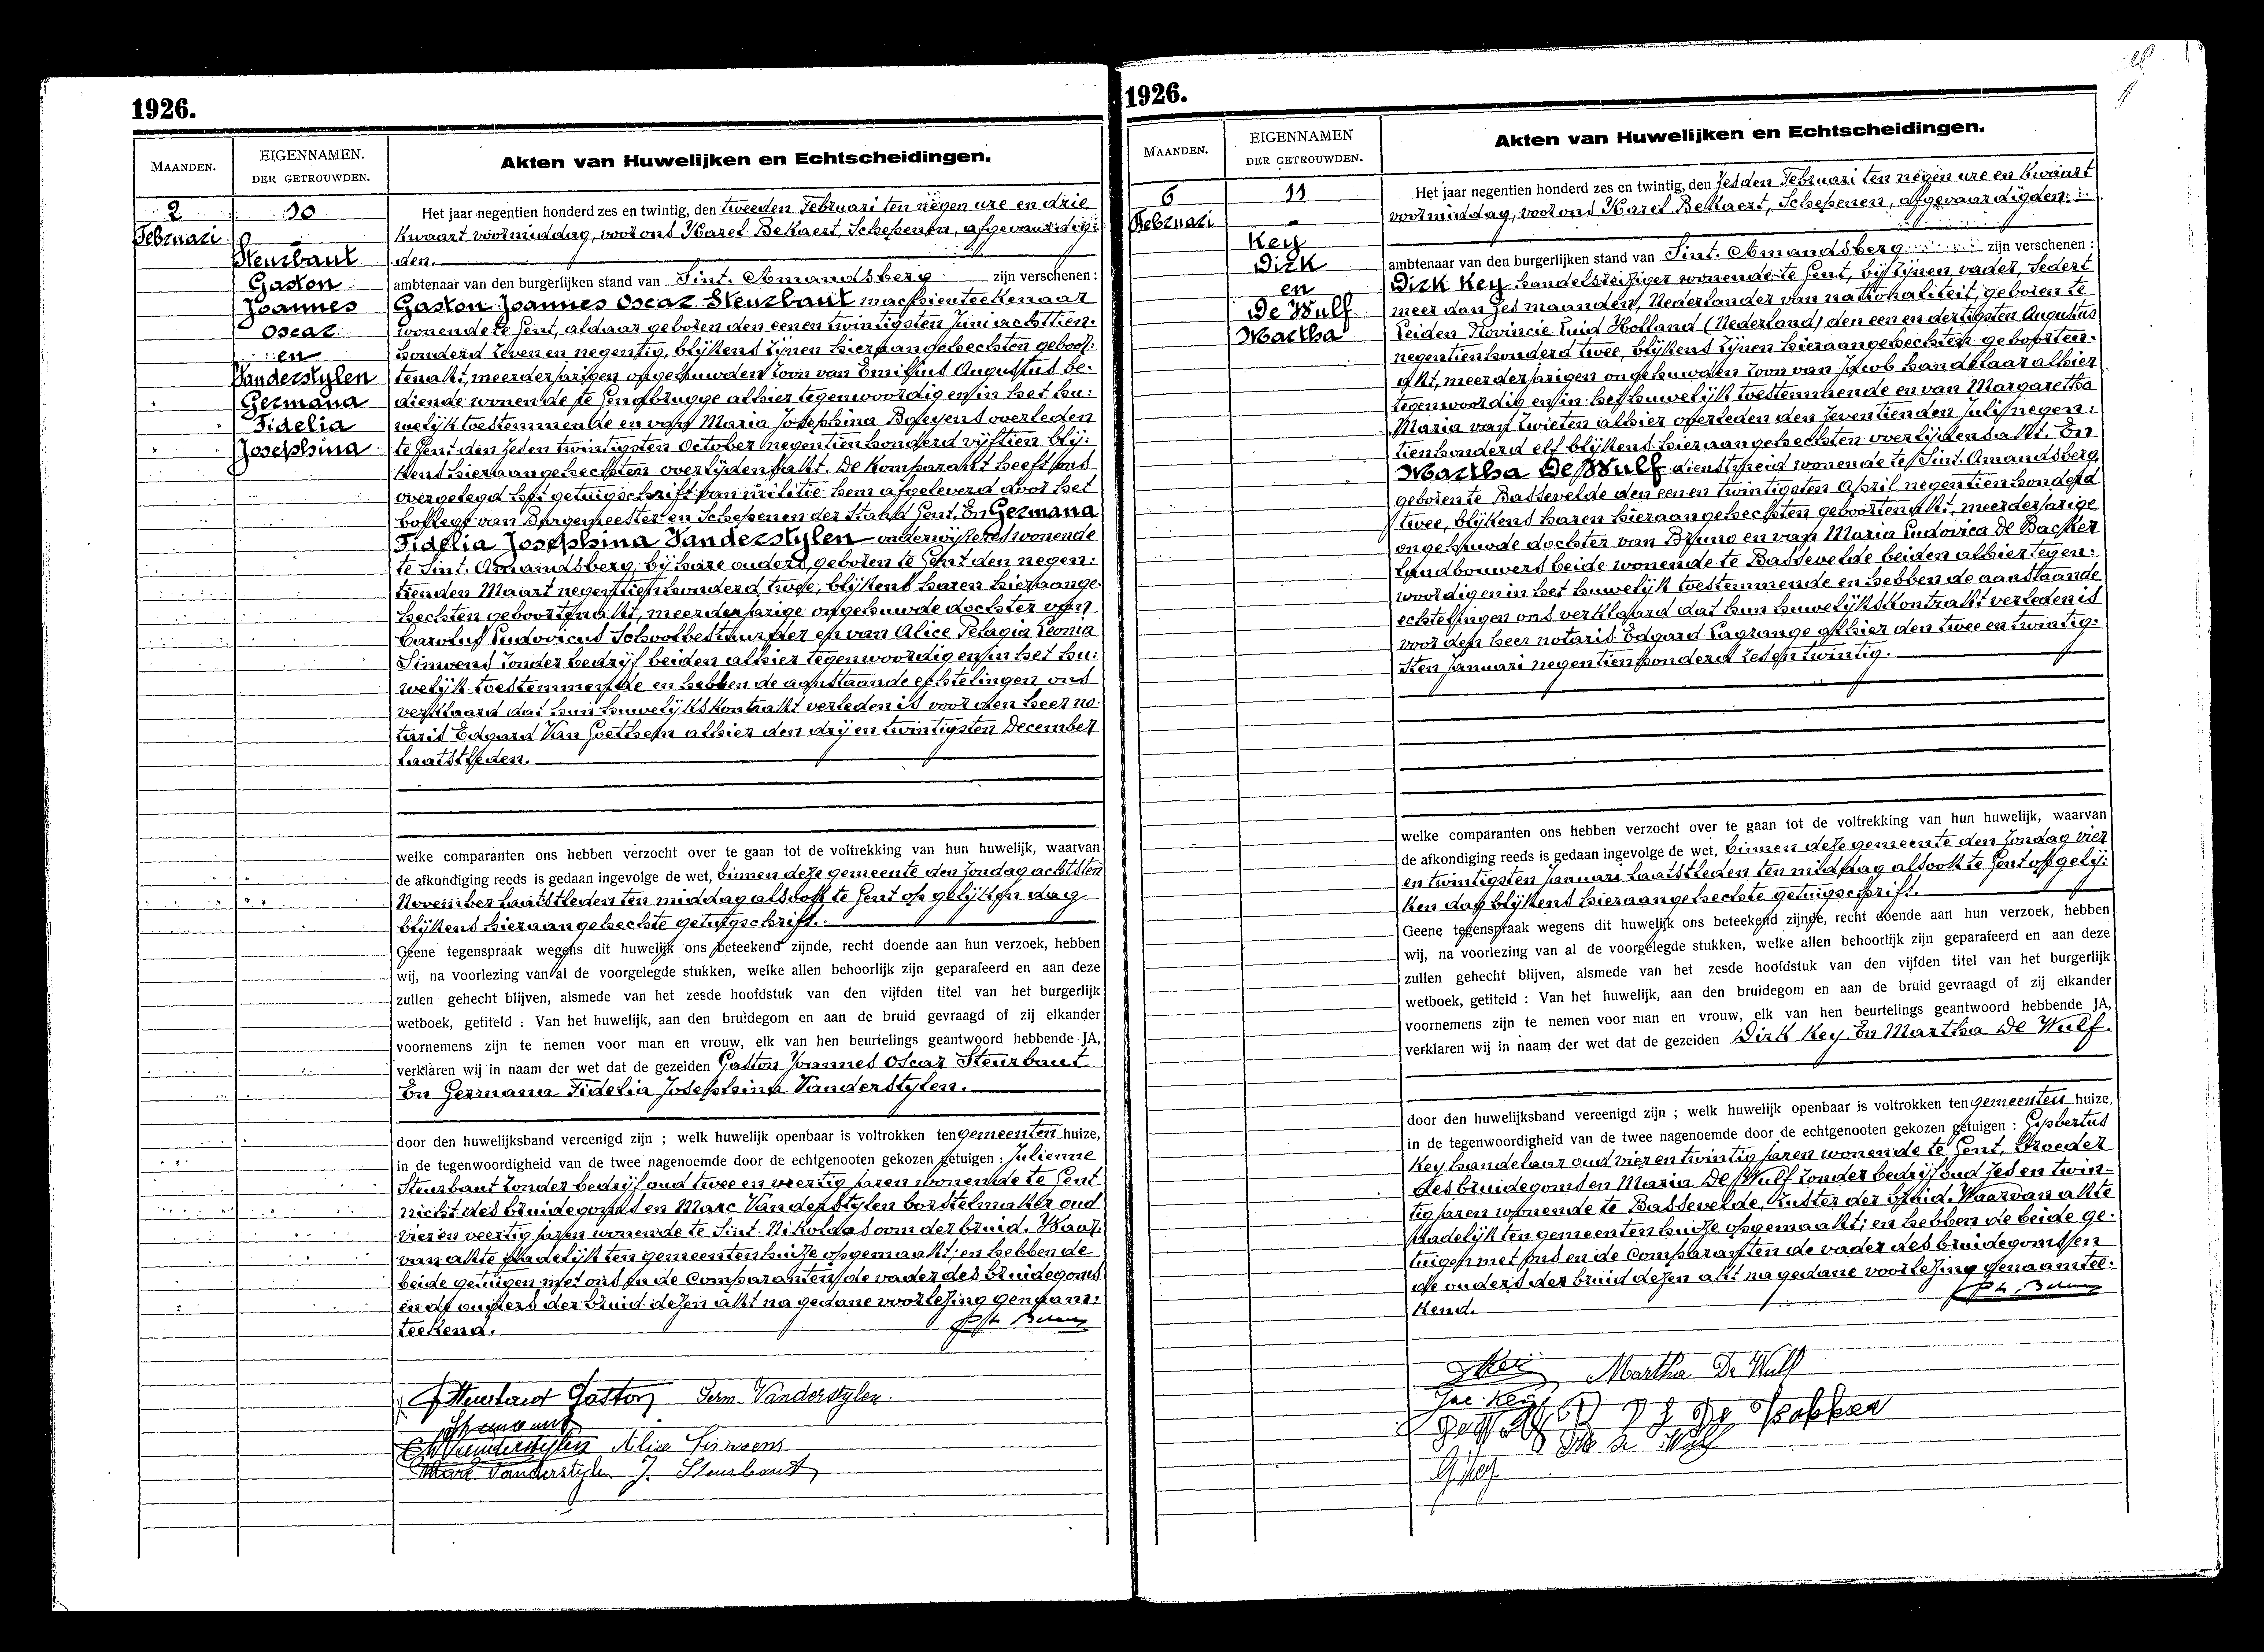 1926.
MAANDEN.
EIGENNAMEN.
DER GETROUWDEN.
Akten van Huwelijken en Echtscheidingen.
2
Februari
10
Steurbaut
Gaston
Joannes
Oscar
en
Vanderstylen
Germana
Fidelia
Josephina
Het jaar negentien honderd zes en twintig, den tweeden Februari ten negen ure en drie
kwaart voormiddag, voor ons Karel Bekaert, Schepenen, afgevaardig:
den.
ambtenaar van den burgerlijken stand van Sint. Amandsberg zijn verschenen :
Gaston Joannes Oscar Steurbaut machienteekenaar
wonende te Gent, aldaar geboren den eenen twintigsten Juni achttien:
honderd zeven en negentig, blijkens zijnen hieraangehechten geboor:
tenakt, meerderjarigen ongehuwden zoon van Emilius Augustus be:
diende wonende te Gendbrugge alhier tegenwoordig en in het hu:
welijk toestemmende en van Maria Josephina Baeyens overleden
te Gent den zeden twintigsten October negentienhonderd vijftien blij:
kens hieraangehechten overlijdensakt. De komparant heeft ons
overgelegd het getuigschrift van militie hem afgeleverd door het
kollege van Burgemeester en Schepenen der Stand Gent. En Germana
Fidelia Josephina Vanderstylen onderwijzeres wonende
te Sint. Amandsberg, bij hare ouders, geboren te Gent den negen:
tienden Maart negentienhonderd twee, blijkens haren hieraange:
hechten geboortenakt, meerderjarige ongehuwde dochter van
Carolus Ludovicus Schoolbestuurder en van Alice Pelagia Leonia
Simoens zonder bedrijf beiden alhier tegenwoordig en in het hu:
welijk toestemmende en hebben de aanstaande echtelingen ons
verklaard dat hun huwelijkskontrakt verleden is voor den heer no:
taris Edgard Van Goethem alhier den drij en twintigsten December
laatstleden.
welke comparanten ons hebben verzocht over te gaan tot de voltrekking van hun huwelijk, waarvan
de afkondiging reeds is gedaan ingevolge de wet, binnen deze gemeente den Zondag achtsten
November laatstleden ten middag alsook te Gent op gelijken dag
blijkens hieraangehechte getuigschrift.
Geene tegenspraak wegens dit huwelijk ons beteekend zijnde, recht doende aan hun verzoek, hebben
wij, na voorlezing van al de voorgelegde stukken, welke allen behoorlijk zijn geparafeerd en aan deze
zullen gehecht blijven, alsmede van het zesde hoofdstuk van den vijfden titel van het burgerlijk
wetboek, getiteld : Van het huwelijk, aan den bruidegom en aan de bruid gevraagd of zij elkander
voornemens zijn te nemen voor man en vrouw, elk van hen beurtelings geantwoord hebbende JA,
verklaren wij in naam der wet dat de gezeiden Gaston Joannes Oscar Steurbaut
En Germana Fidelia Josephina Vanderstylen.
door den huwelijksband vereenigd zijn ; welk huwelijk openbaar is voltrokken ten gemeenten huize,
in de tegenwoordigheid van de twee nagenoemde door de echtgenooten gekozen getuigen : Julienne
Steurbaut zonder bedrijf oud twee en veertig jaren wonende te Gent
nicht des bruidegoms en Marc Vanderstylen borstelmaker oud
vier en veertig jaren wonende te Sint. Nikolaas oom der bruid. Waar:
van akte dadelijk ten gemeentenhuize opgemaakt; en hebben de
beide getuigen met ons en de Comparanten de vader des bruidegoms
en de ouders der bruid dezen akt na gedane voorlezing genaam:
teekend.
Steurbaut Gaston Germ. Vanderstylen.
Vanderstylen Alice Simoens
Marc Vanderstylen J. Steurbaut
1926.
MAANDEN.
EIGENNAMEN
DER GETROUWDEN.
Akten van Huwelijken en Echtscheidingen.
6
Februari
11
Key
Dirk
en
De Wulf
Martha
Het jaar negentien honderd zes en twintig, den zesden Februari ten negen ure en kwaart
voormiddag, voor ons Karel Bekaert, Schepenen, afgevaardigden.
ambtenaar van den burgerlijken stand van Sint. Amandsberg zijn verschenen :
Dirk Key handelsreiziger wonende te Gent, bij zijnen vader, sedert
meer dan zes maanden, Nederlander van nationaliteit, geboren te
Leiden Provincie Zuid Holland (Nederland) den een en dertigsten Augustus
negentienhonderd twee, blijkens zijnen hieraangehechten geboorten:
akt, meerderjarigen ongehuwden zoon van Jacob handelaar alhier
tegenwoordig en in het huwelijk toestemmende en van Margaretha
Maria van Zwieten alhier overleden den zeventienden Juli negen:
tienhonderd elf blijkens hieraangehechten overlijdensakt. En
Martha De Wulf dienstmeid wonende te Sint. Amandsberg,
geboren te Bassevelde den eenen twintigsten April negentienhonderd
twee, blijkens haren hieraangehechten geboortenakt, meerderjarige
ongehuwde dochter van Bruno en van Maria Ludovica De Backer
landbouwers beide wonende te Bassevelde beiden alhier tegen:
woordig en in het huwelijk toestemmende en hebben de aanstaande
echtelingen ons verklaard dat hun huwelijkskontrakt verleden is
voor den heer notaris Edgard Lagrange alhier den twee en twintig:
sten Januari negentienhonderd zes en twintig.
welke comparanten ons hebben verzocht over te gaan tot de voltrekking van hun huwelijk, waarvan
de afkondiging reeds is gedaan ingevolge de wet, binnen deze gemeente den Zondag vier
en twintigsten Januari laatstleden ten middag alsook te Gent op gelij:
ken dag blijkens hieraangehechte getuigschrift.
Geene tegenspraak wegens dit huwelijk ons beteekend zijnde, recht doende aan hun verzoek, hebben
wij, na voorlezing van al de voorgelegde stukken, welke allen behoorlijk zijn geparafeerd en aan deze
zullen gehecht blijven, alsmede van het zesde hoofdstuk van den vijfden titel van het burgerlijk
wetboek, getiteld : Van het huwelijk, aan den bruidegom en aan de bruid gevraagd of zij elkander
voornemens zijn te nemen voor man en vrouw, elk van hen beurtelings geantwoord hebbende JA,
verklaren wij in naam der wet dat de gezeiden Dirk Key En Martha De Wulf.
door den huwelijksband vereenigd zijn ; welk huwelijk openbaar is voltrokken ten gemeenten huize,
in de tegenwoordigheid van de twee nagenoemde door de echtgenooten gekozen getuigen : Gysbertus
Key handelaar oud vier en twintig jaren wonende te Gent, broeder
des bruidegoms en Maria De Wulf zonder bedrijf oud zes en twin-
tig jaren wonende te Bassevelde, zuster der bruid. Waarvan akte
dadelijk ten gemeentenhuize opgemaakt; en hebben de beide ge:
tuigen met ons en de Comparanten de vader des bruidegoms en
de ouders der bruid dezen akt na gedane voorlezing genaamtee:
kend.
Key Martha De Wulf
Jac. Key
G. Key